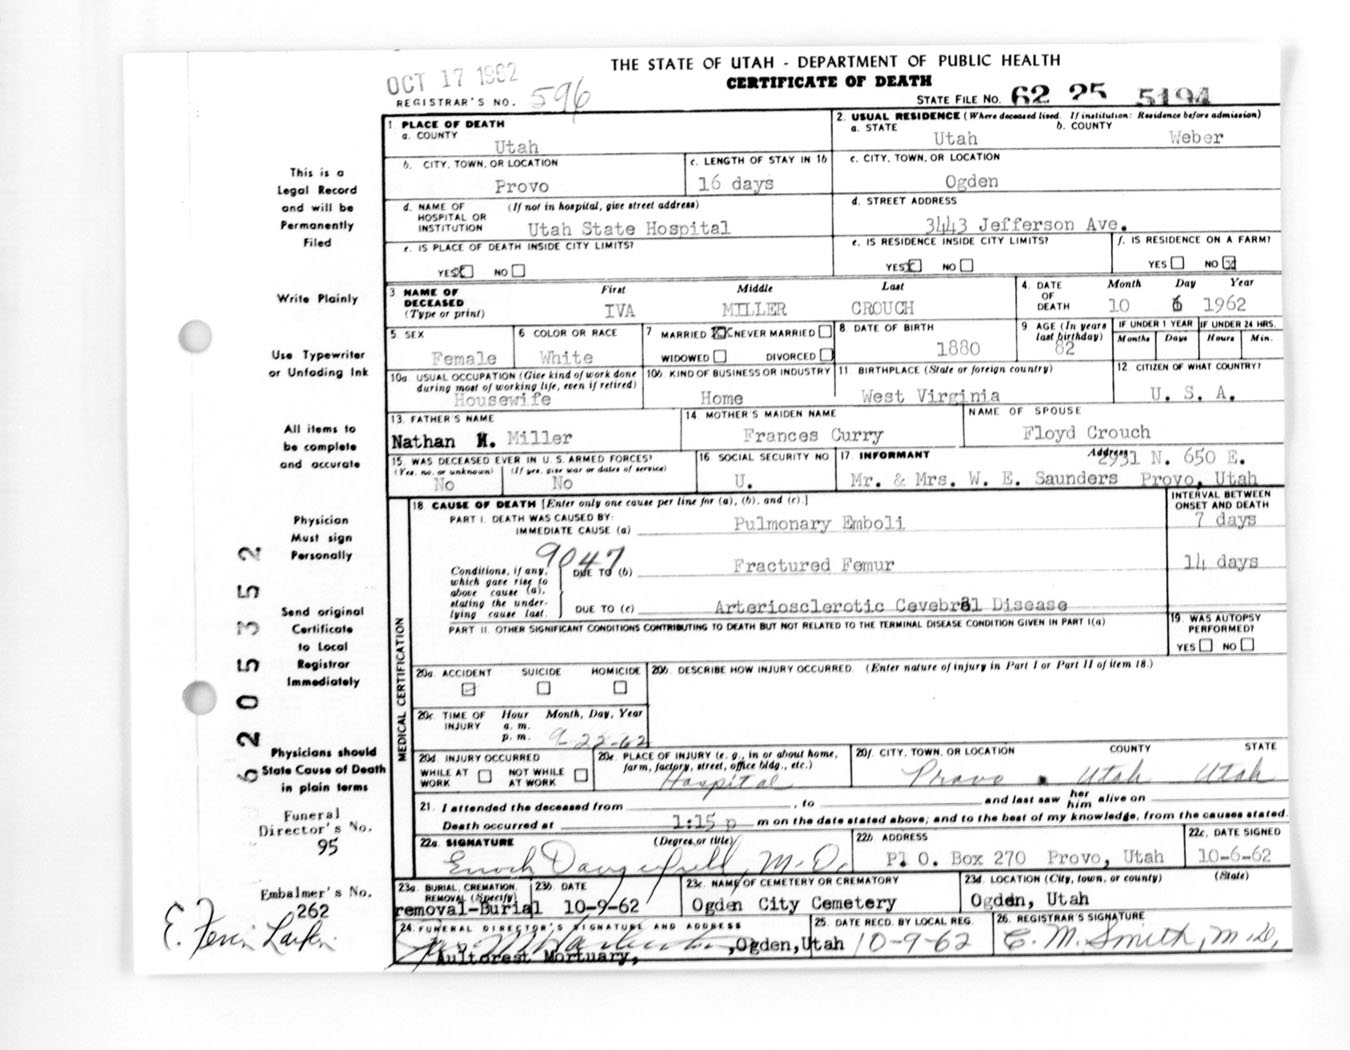 OCT 17 1962
THE STATE OF UTAH - DEPARTMENT OF PUBLIC HEALTH
CERTIFICATE OF DEATH
REGISTRAR'S NO. 596
STATE FILE No. 62 25 5194
1 PLACE OF DEATH
a. COUNTY
Utah
2. USUAL RESIDENCE (Where deceased lived. If institution: Residence before admission)
a. STATE b. COUNTY
Utah Weber
b. CITY, TOWN, OR LOCATION
Provo
c. LENGTH OF STAY IN 1b
16 days
c. CITY, TOWN, OR LOCATION
Ogden
d. NAME OF (If not in hospital, give street address)
HOSPITAL OR
INSTITUTION Utah State Hospital
d. STREET ADDRESS
3443 Jefferson Ave.
e. IS PLACE OF DEATH INSIDE CITY LIMITS?
YES NO
e. IS RESIDENCE INSIDE CITY LIMITS?
YES NO
f. IS RESIDENCE ON A FARM?
YES NO
3 NAME OF DECEASED (Type or print)
First Middle Last
IVA MILLER CROUCH
4. DATE OF DEATH
Month Day Year
10 6 1962
5 SEX
Female
6 COLOR OR RACE
White
7 MARRIED NEVER MARRIED
WIDOWED DIVORCED
8 DATE OF BIRTH
1880
9 AGE (In years last birthday)
82
IF UNDER 1 YEAR IF UNDER 24 HRS.
Months Days Hours Min.
10a USUAL OCCUPATION (Give kind of work done during most of working life, even if retired)
Housewife
10b KIND OF BUSINESS OR INDUSTRY
Home
11 BIRTHPLACE (State or foreign country)
West Virginia
12 CITIZEN OF WHAT COUNTRY?
U. S. A.
13. FATHER'S NAME
Nathan H. Miller
14 MOTHER'S MAIDEN NAME
Frances Curry
NAME OF SPOUSE
Floyd Crouch
15. WAS DECEASED EVER IN U.S. ARMED FORCES?
(Yes, no, or unknown) (If yes, give war or dates of service)
No No
16 SOCIAL SECURITY NO
U.
17 INFORMANT Address
2931 N. 650 E.
Mr. & Mrs. W. E. Saunders Provo, Utah
18 CAUSE OF DEATH [Enter only one cause per line for (a), (b), and (c).]
INTERVAL BETWEEN ONSET AND DEATH
PART I. DEATH WAS CAUSED BY:
IMMEDIATE CAUSE (a) Pulmonary Emboli 7 days
9047
Conditions, if any, which gave rise to above cause (a), stating the underlying cause last.
DUE TO (b) Fractured Femur 14 days
DUE TO (c) Arteriosclerotic Cevebral Disease
PART II. OTHER SIGNIFICANT CONDITIONS CONTRIBUTING TO DEATH BUT NOT RELATED TO THE TERMINAL DISEASE CONDITION GIVEN IN PART I(a)
19. WAS AUTOPSY PERFORMED?
YES NO
20a. ACCIDENT SUICIDE HOMICIDE
20b DESCRIBE HOW INJURY OCCURRED. (Enter nature of injury in Part I or Part II of item 18.)
20c. TIME OF INJURY
Hour Month, Day, Year
a. m.
p. m. 9-22-62
20d. INJURY OCCURRED
WHILE AT WORK NOT WHILE AT WORK
20e. PLACE OF INJURY (e. g., in or about home, farm, factory, street, office bldg., etc.)
Hospital
20f. CITY, TOWN, OR LOCATION COUNTY STATE
Provo Utah Utah
21. I attended the deceased from , to and last saw her him alive on
Death occurred at 1:15 p m on the date stated above; and to the best of my knowledge, from the causes stated.
22a SIGNATURE (Degree or title)
Enoch Dangerfield, M.D.
22b ADDRESS
Pl O. Box 270 Provo, Utah
22c. DATE SIGNED
10-6-62
23a. BURIAL, CREMATION, REMOVAL (Specify)
removal-Burial
23b DATE
10-9-62
23c. NAME OF CEMETERY OR CREMATORY
Ogden City Cemetery
23d. LOCATION (City, town, or county) (State)
Ogden, Utah
24. FUNERAL DIRECTOR'S SIGNATURE AND ADDRESS
,Ogden,Utah
Aultorest Mortuary,
25. DATE RECD. BY LOCAL REG.
10-9-62
26. REGISTRAR'S SIGNATURE
C. M. Smith, M.D.
MEDICAL CERTIFICATION
This is a
Legal Record
and will be
Permanently
Filed
Write Plainly
Use Typewriter
or Unfading Ink
All items to
be complete
and accurate
Physician
Must sign
Personally
Send original
Certificate
to Local
Registrar
Immediately
Physicians should
State Cause of Death
in plain terms
Funeral
Director's No.
95
Embalmer's No.
262
E. Ferrin Larkin
6205352